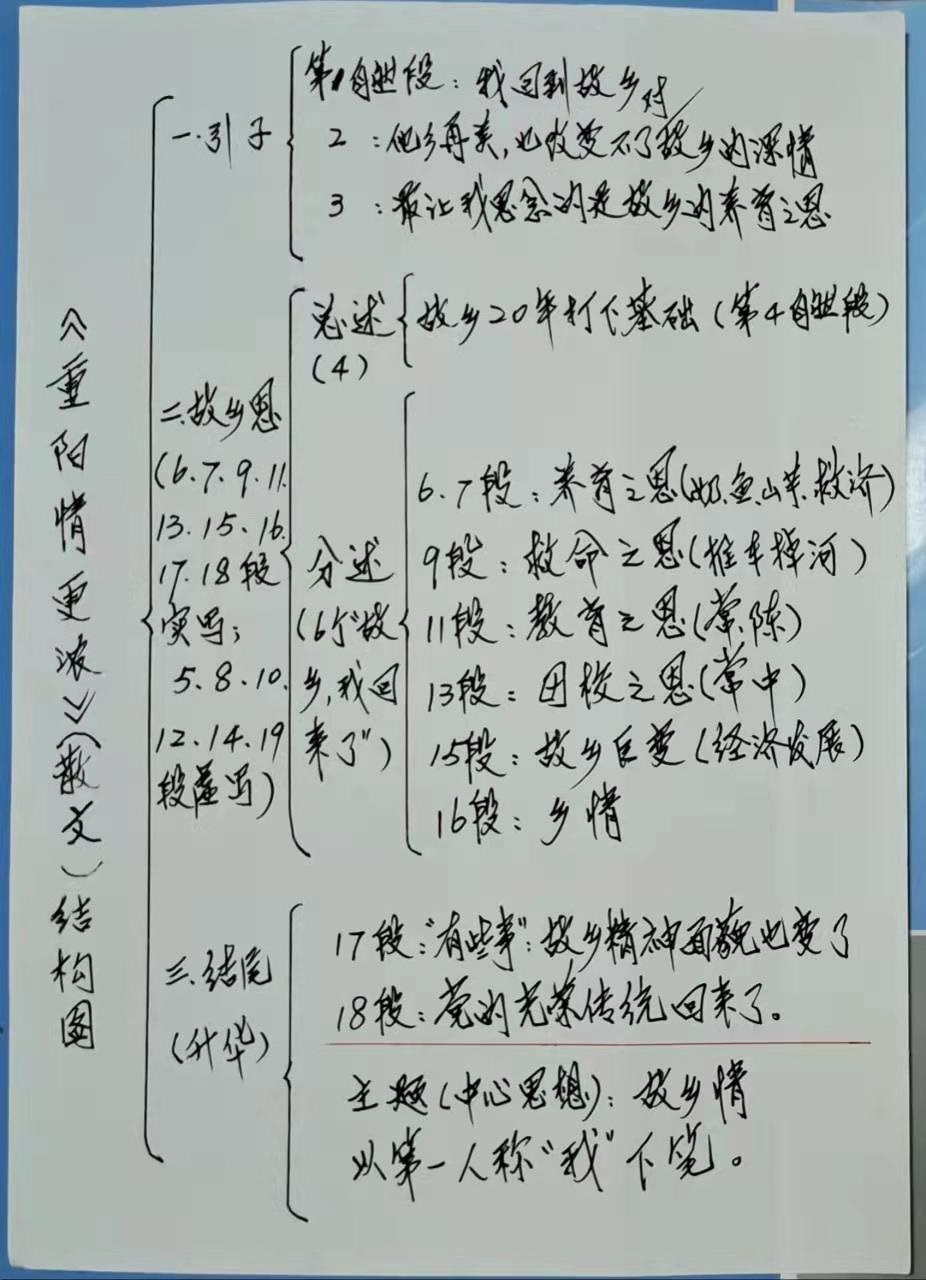 《重阳情更浓》(散文)结构图
一.引子
第1自然段:我回到故乡时
2:他乡再美,也改变不了故乡的深情
3:最让我思念的是故乡的养育之恩
二.故乡恩
(6.7.9.11.
13.15.16.
17.18段
实写;
5.8.10.
12.14.19
段虚写)
总述
(4)
故乡20年打下基础(第4自然段)
分述
(6个"故
乡,我回
来了")
6.7段:养育之恩(奶.鱼.山羊.救济)
9段:救命之恩(推车掉河)
11段:教育之恩(常.陈)
13段:母校之恩(常中)
15段:故乡巨变(经济发展)
16段:乡情
三.结尾
(升华)
17段:"有些事":故乡精神面貌也变了
18段:党的光荣传统回来了。
主题(中心思想):故乡情
以第一人称"我"下笔。